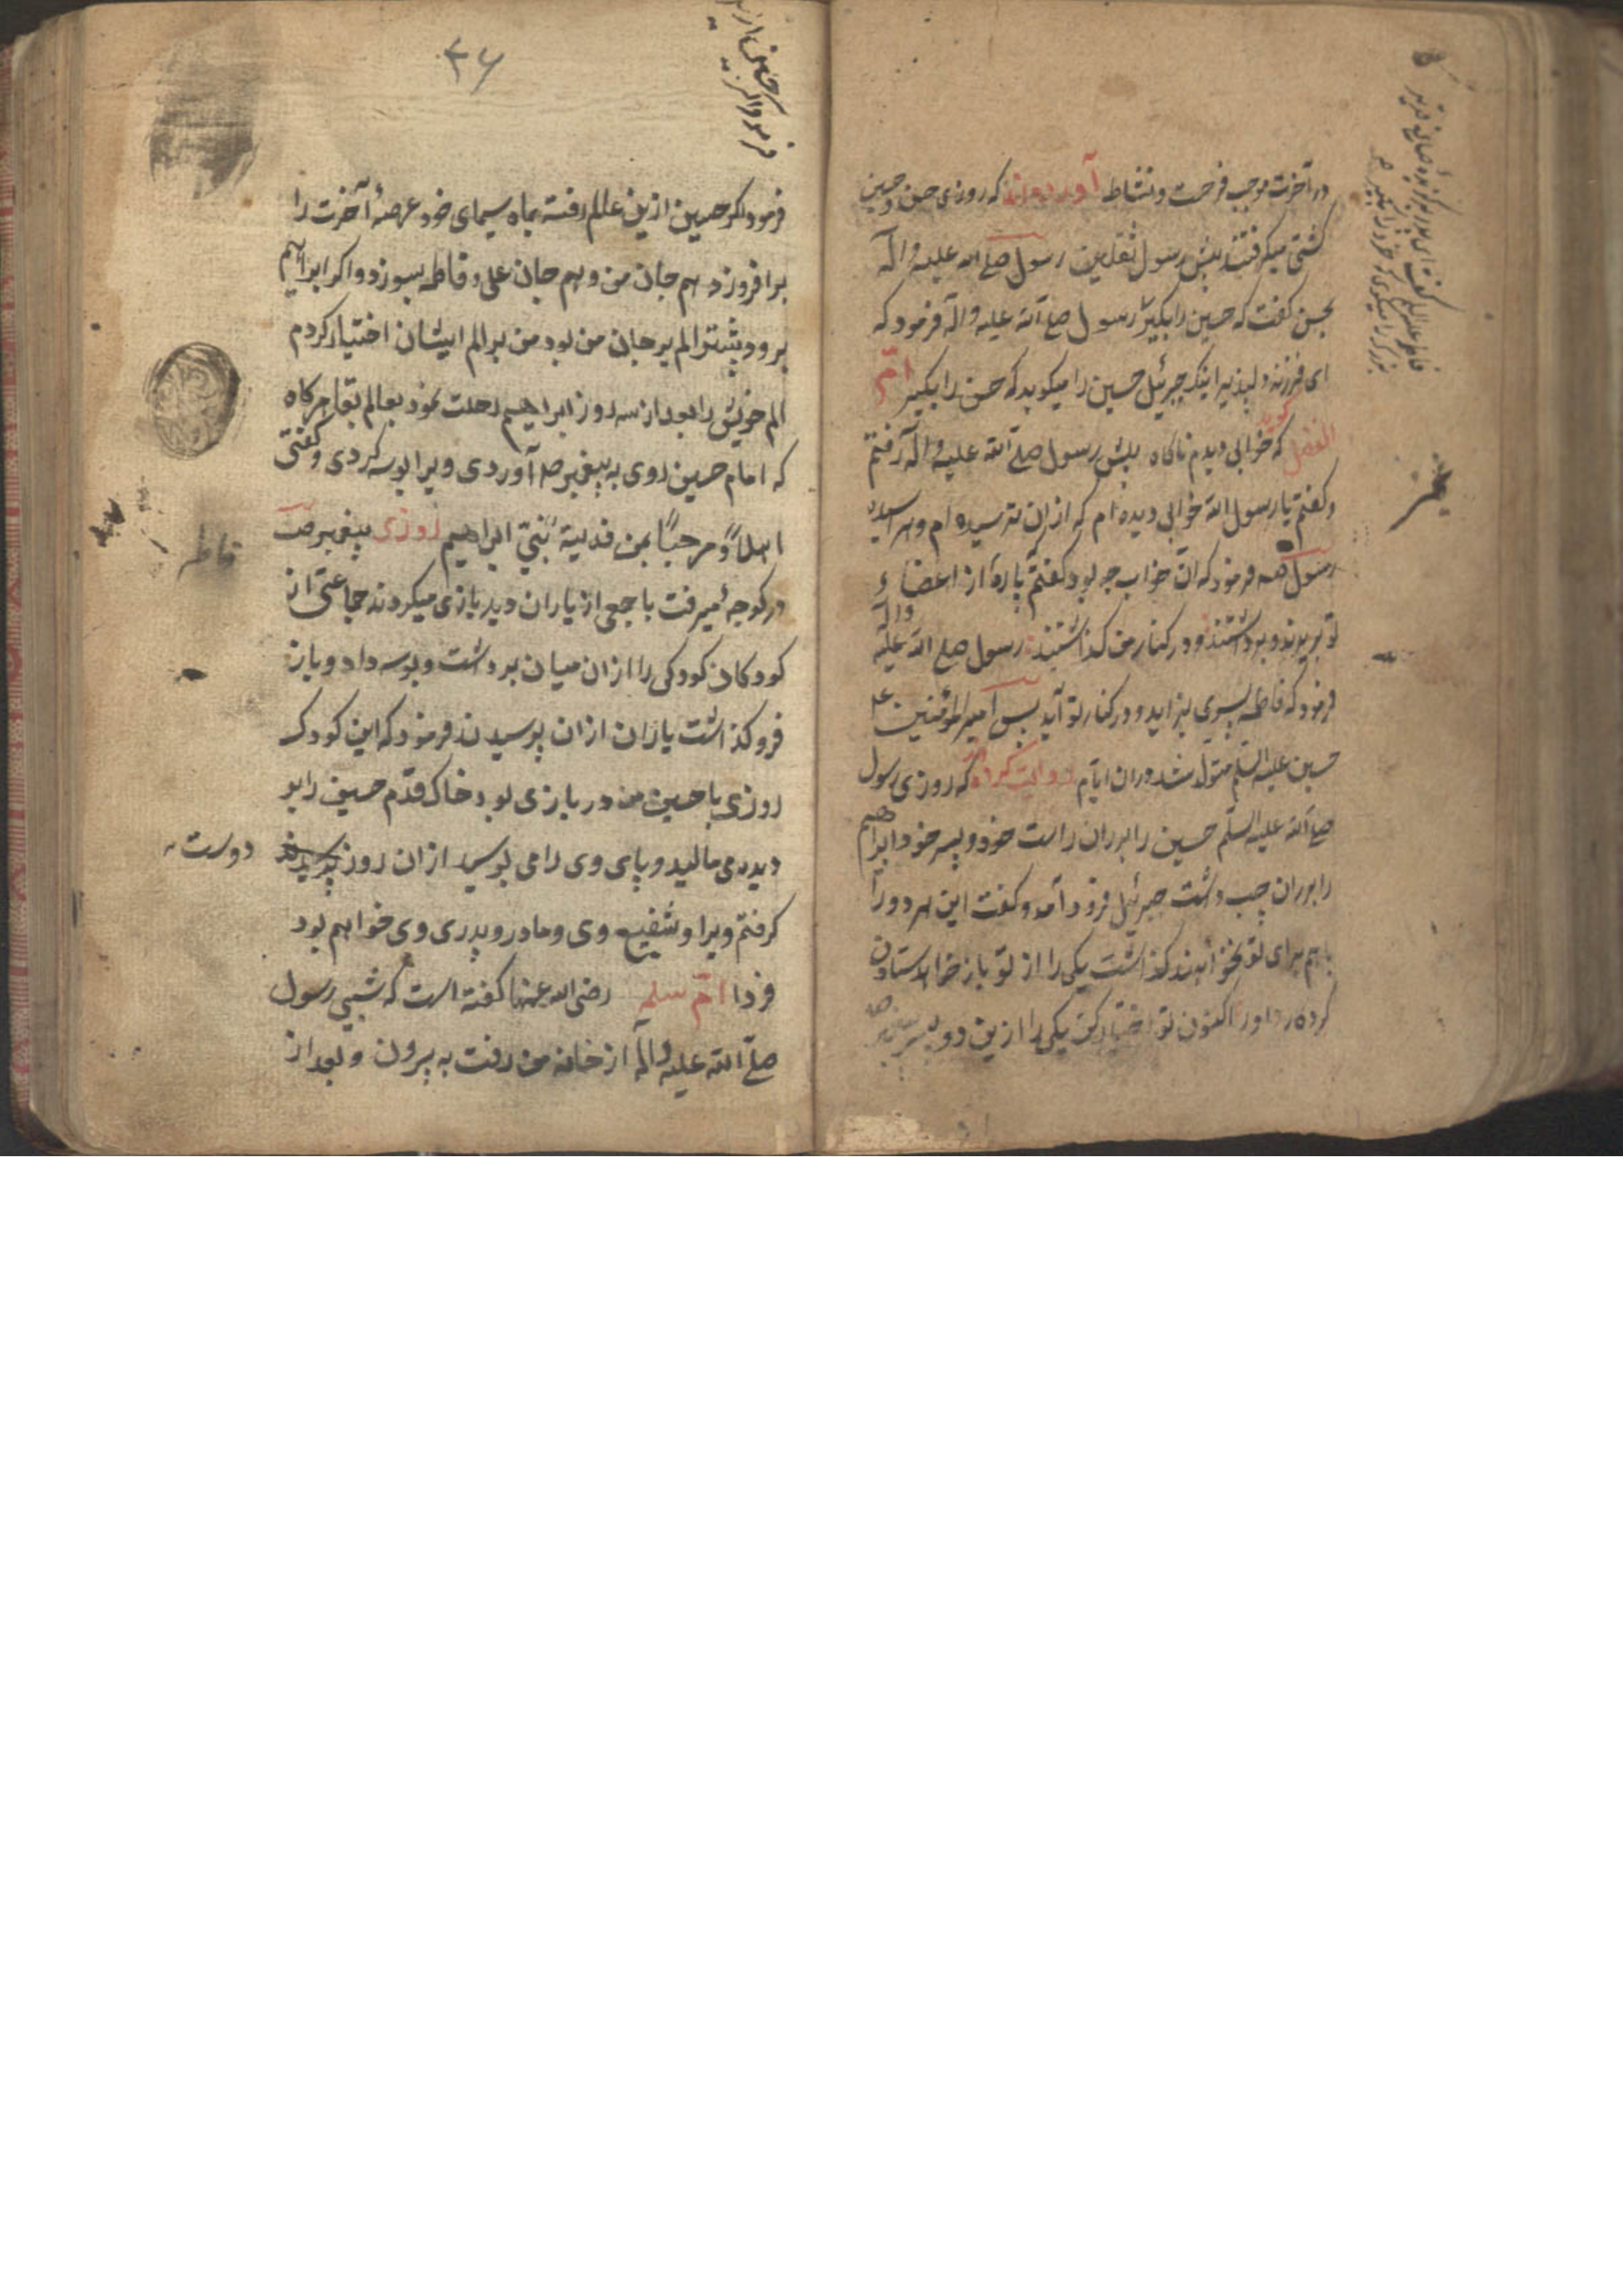 در آخرت موجب فرحت و نشاط آورده‌اند که روزی حسن و حسین
کشتی میگرفتند پیش رسول ثقلین رسول صلی الله علیه و آله
بحسن گفت که حسین را بگیر رسول صلی الله علیه و آله فرمود که
ای فرزند دلپذیر اینک جبرئیل حسین را میگوید که حسن را بگیر امّ
الفضل گوید که خوابی دیدم ناگاه پیش رسول صلی الله علیه و آله رفتم
و گفتم یا رسول الله خوابی دیده‌ام که از آن ترسیده‌ام و هراسیده
رسول فرمود که آن خواب چه بود گفتم پارهٔ از اعضاء
تو بریدند و برداشتند و در کنار من گذاشتند رسول صلی الله علیه وآله
فرمود که فاطمه پسری بزاید و در کنار تو آید پس امیرالمؤمنین
حسین علیه السلم متولد شد در آن ایام روایت کرده که روزی رسول
صلی الله علیه السلم حسین را بر ران راست خود و پسر خود ابراهیم
را بر ران چپ داشت جبرئیل فرود آمد و گفت این هر دو را
باهم برای تو نخواهند گذاشت یکی را از تو باز خواهد ستادن
کرده داور اکنون تو اختیار کن یکی را ازین دو پسر
فاطمه علیها السلم گفت ای پدر بزرگوار
بزرگ را میگوی که خورد را بگیر
۳۶
فرمود اگر حسین ازین
فرمود اگر حسین ازین عالم رفته بماه سیمای خود عرصهٔ آخرت را
برافروزد هم جان من و هم جان علی و فاطمه بسوزد و اگر ابراهیم
برود بیشتر الم بر جان من بود من بر الم ایشان اختیار کردم
الم خویش را بعد از سه روز ابراهیم رحلت نمود بعالم بقا هرگاه
که امام حسین روی به پیغمبر صلی آوردی ویرا بوسه کردی و گفتی
اهلاً و مرحباً بمن فدیته بنتی ابراهیم روزی پیغمبر ص
در کوچه میرفت با جمعی از یاران دید بازی میکردند جماعتی از
کودکان کودکی را از آن میان برداشت و بوسه داد و باز
فرو گذاشت یاران از آن پرسیدند فرمود که این کودک
روزی با حسین من در بازی بود خاک قدم حسین را بر
دیده می‌مالید و پای وی را می بوسید از آن روز دوست
گرفتم ویرا و شفیع وی و مادر و پدری وی خواهم بود
فردا امّ سلمه رضی الله عنها گفته است که شبی رسول
صلی الله علیه و آله از خانه من رفت به بیرون و بعد از
فاطمه